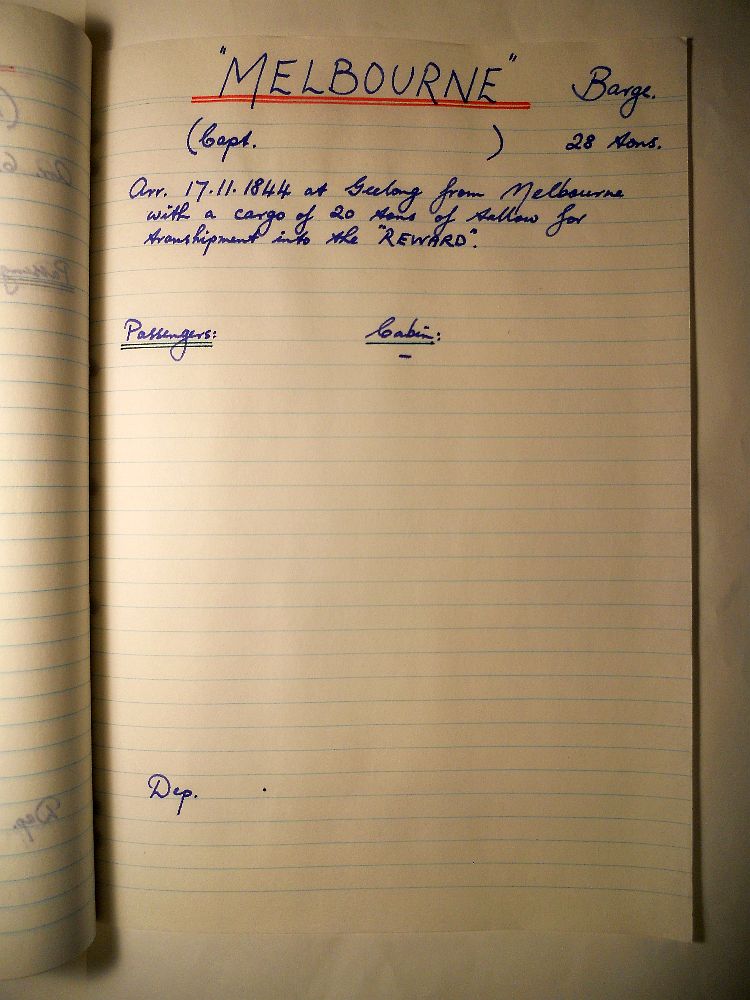 "MELBOURNE" Barge.
(Capt. ) 28 tons.
Arr. 17.11.1844 at Geelong from Melbourne
with a cargo of 20 tons of tallow for
transhipment into the "REWARD".
Passengers: Cabin:
–
Dep. .